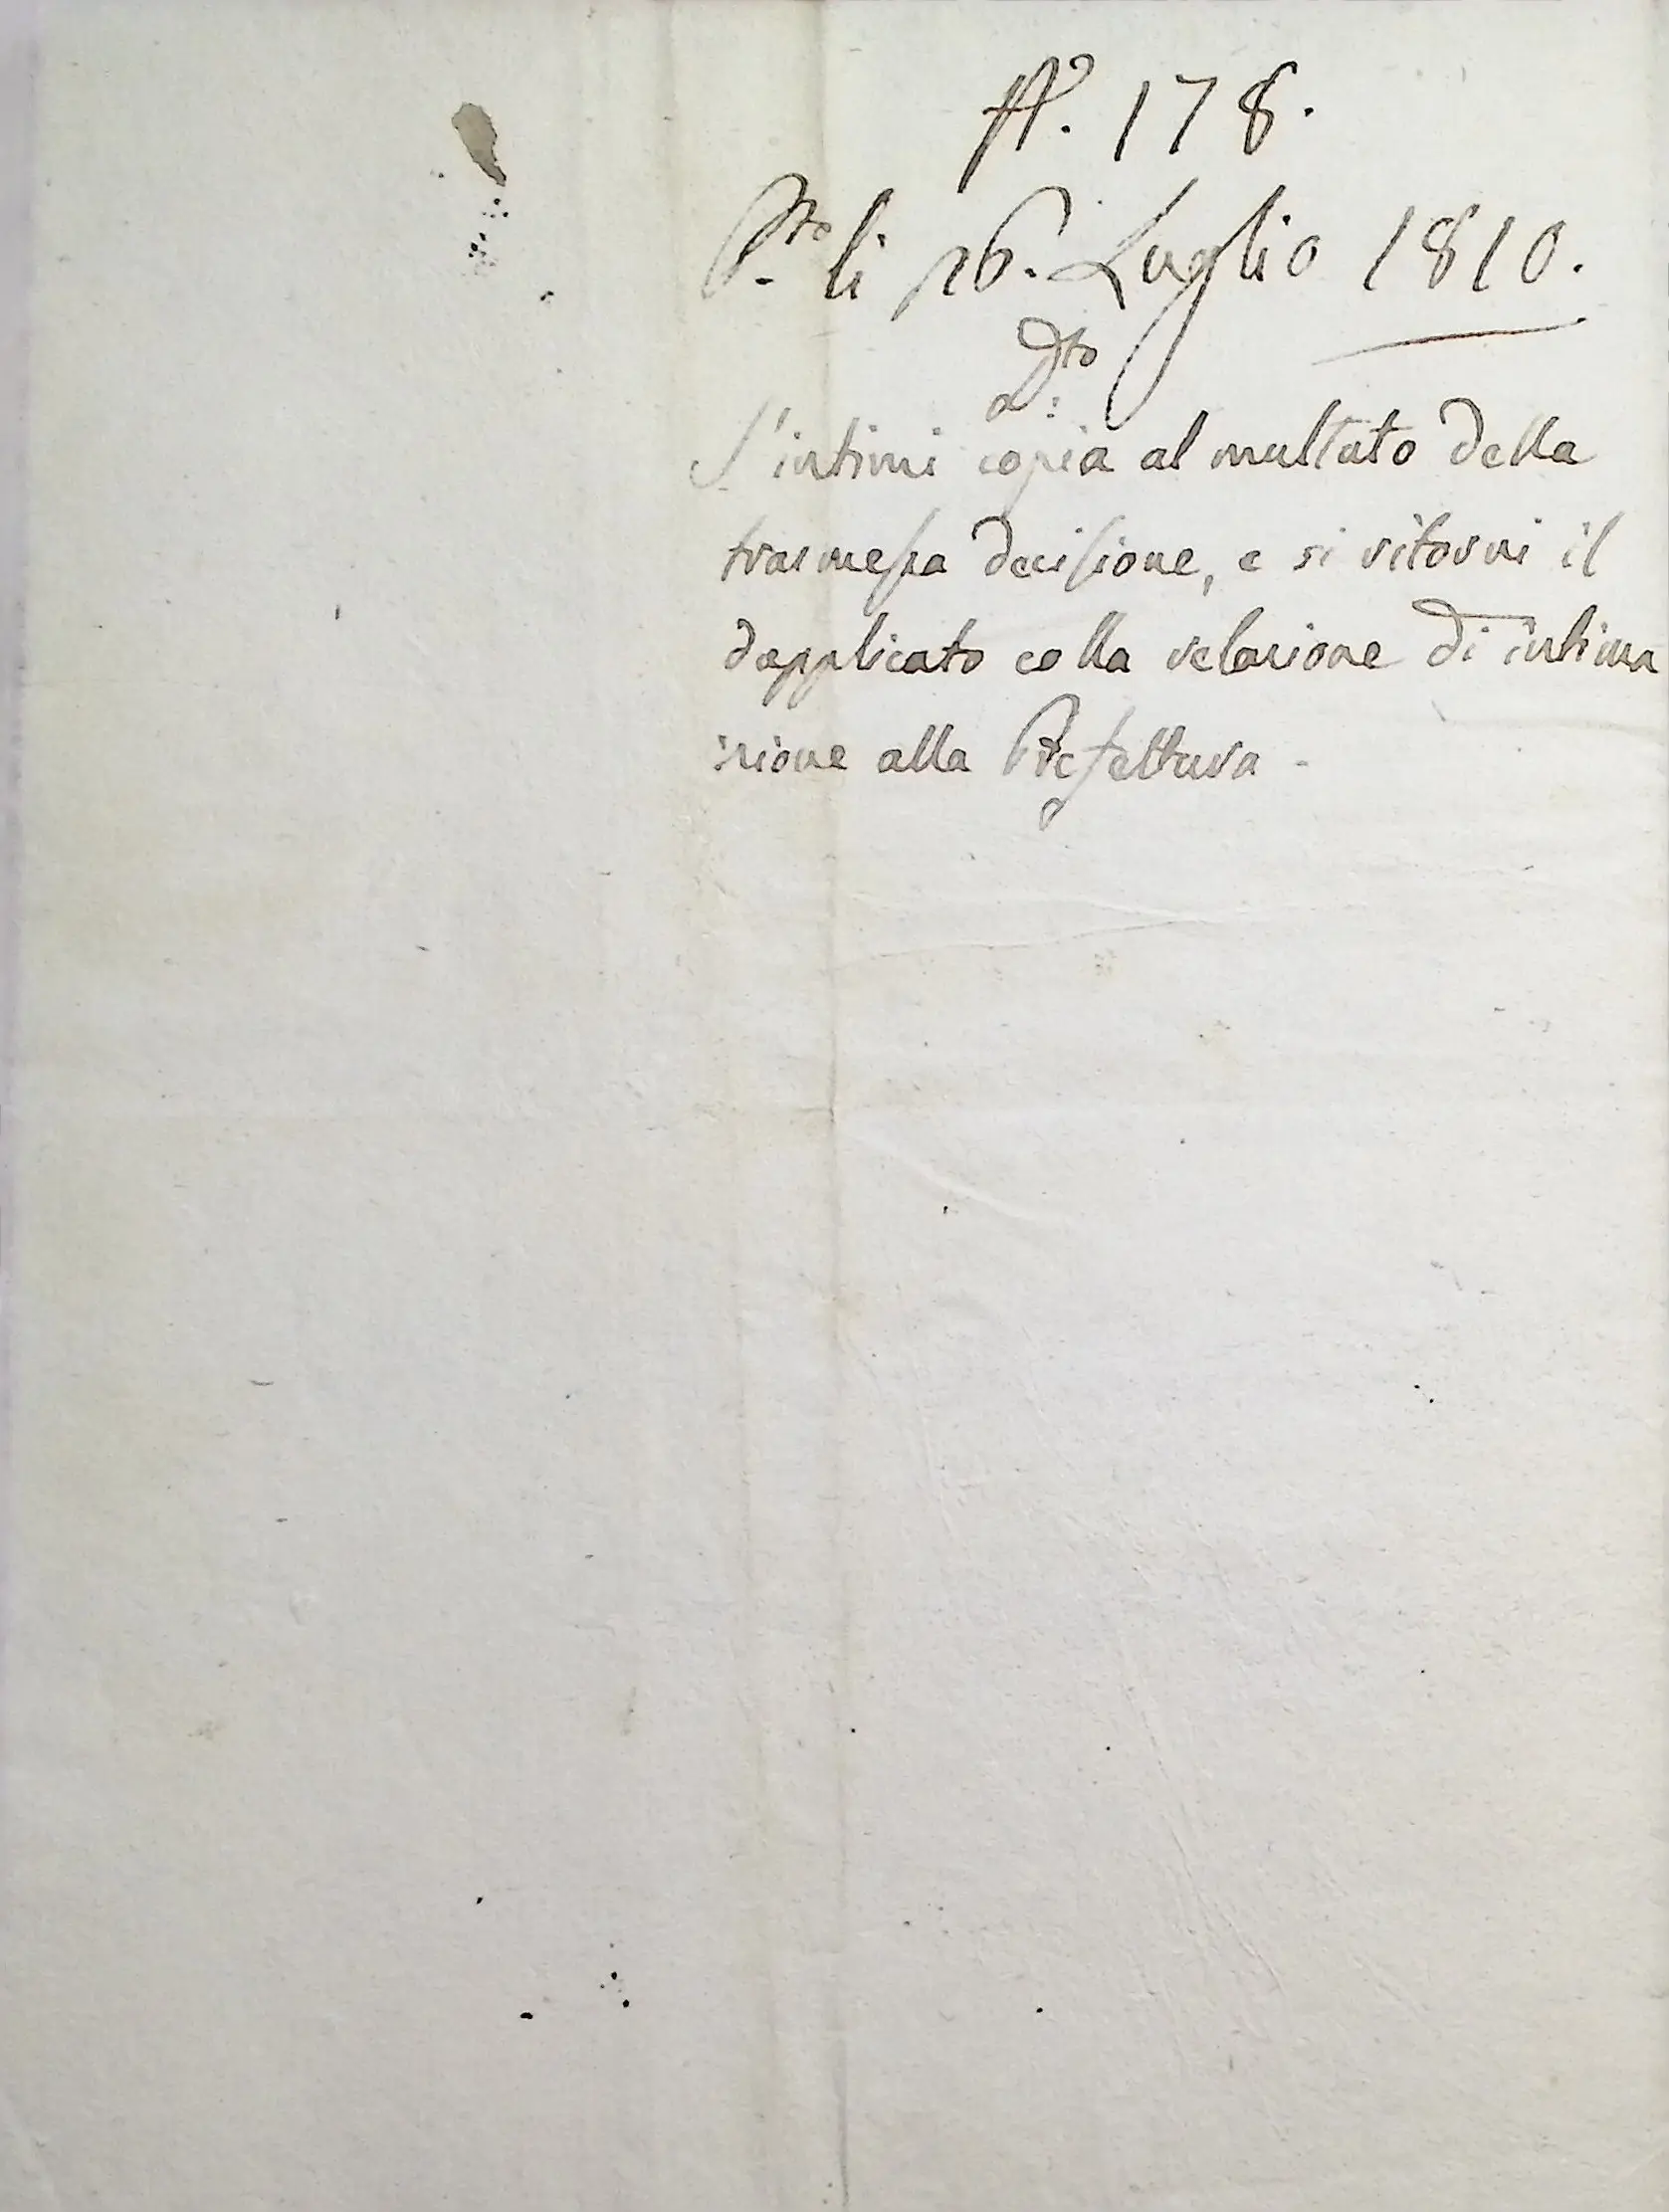 N°. 178.
P.to li 26. Luglio 1810.
D.to
S'intimi copia al multato della
trasmessa decisione, e si ritorni il
dupplicato colla relazione di intima
zione alla Prefettura.